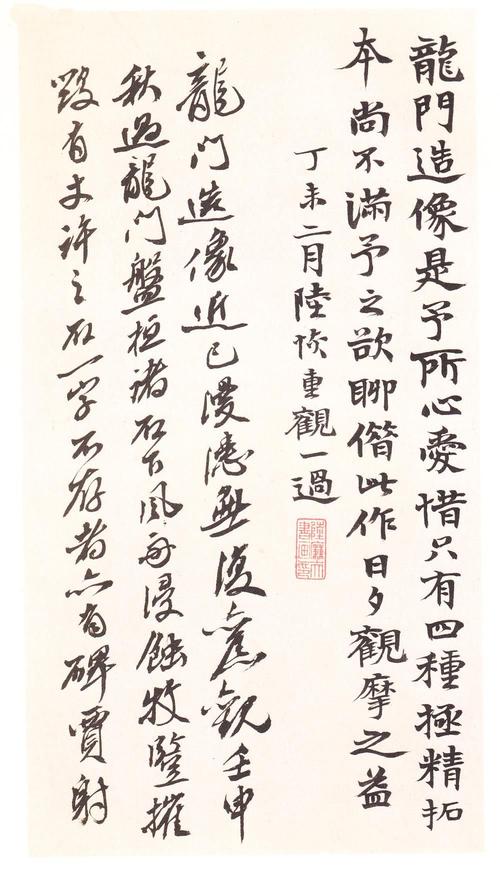 龍門造像是予所心愛惜只有四種極精拓
本尚不滿予之欲聊僭此作日夕觀摩之益
丁未二月陸恢重觀一過
龍門造像近已漫漶無復舊觀壬申
秋過龍門盤桓諸石下風雨浸蝕牧豎摧
毀有丈許之石一字不存者亦有碑賈射